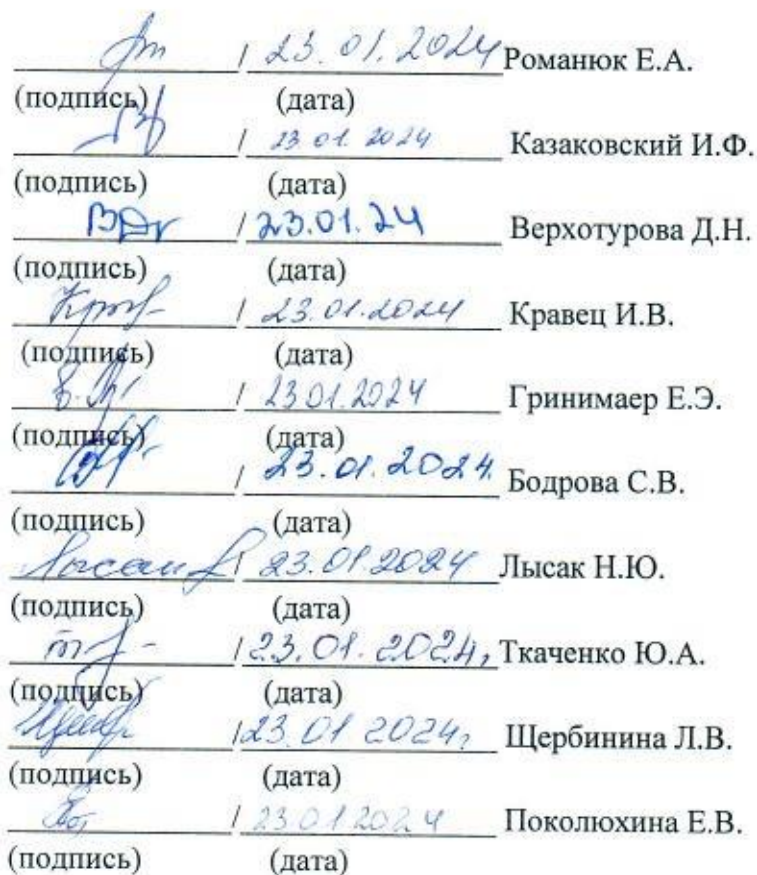 / 23.01.2024 Романюк Е.А.
(подпись) (дата)
/ 23.01.2024 Казаковский И.Ф.
(подпись) (дата)
/ 23.01.24 Верхотурова Д.Н.
(подпись) (дата)
/ 23.01.2024 Кравец И.В.
(подпись) (дата)
/ 23.01.2024 Гринимаер Е.Э.
(подпись) (дата)
/ 23.01.2024. Бодрова С.В.
(подпись) (дата)
/ 23.01.2024 Лысак Н.Ю.
(подпись) (дата)
/ 23.01.2024г Ткаченко Ю.А.
(подпись) (дата)
/ 23.01 2024г Щербинина Л.В.
(подпись) (дата)
/ 23.01.2024 Поколюхина Е.В.
(подпись) (дата)